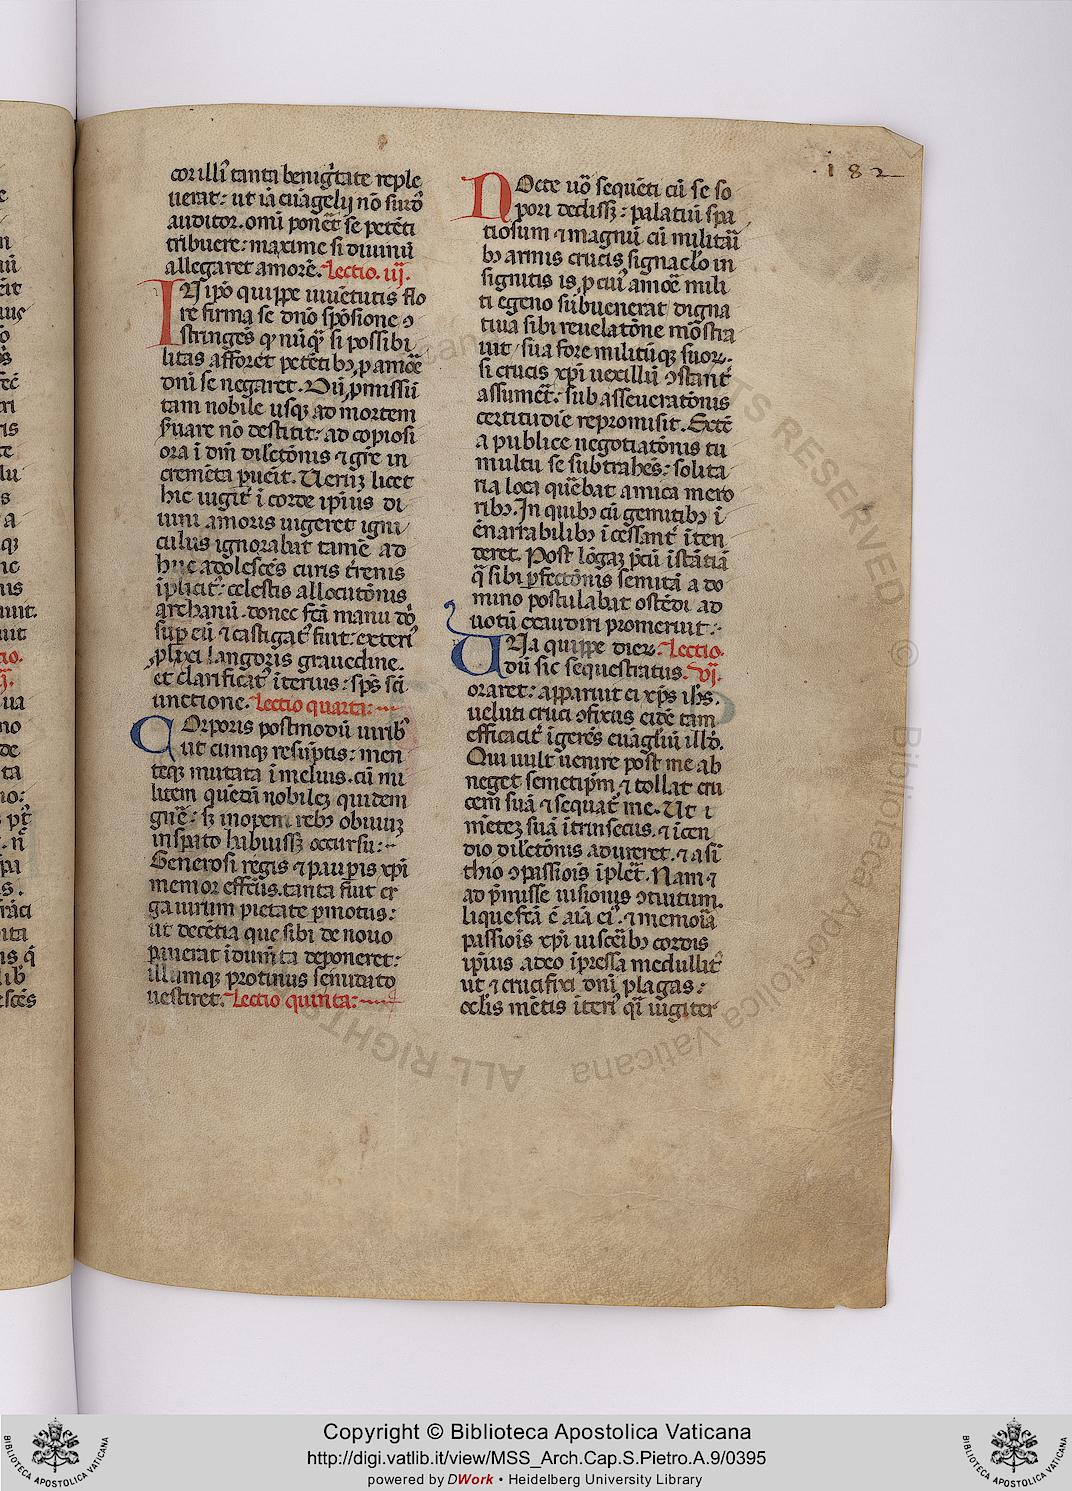 182
cor illi᷑ tanta benig᷑tate reple
uerat: ut iā euāgelij nō surd᷑
auditor. omni ponēt se petēti
tribuere: maxime si diuinū
allegaret amorē. Lectio. iij.
IN ip̄o quippe iuuētutis flo
re firma se dn̄o spōsione ꝯ
stringēs ꝙ nūq̄ᷓ si possibi
litas afforet petētibꝫ ꝓ amoē
dn̄i se negaret. Dū ꝓmissū
tam nobile usqꝫ ad mortem
s̄uare nō destitit: ad copiosi
ora ī dm̄ dilectōnis ⁊ gr̄e in
cremēta puēit. Uerūꝫ licet
hic iugit᷑ ī corde ip̄ius di
uini amoris uigeret igni
culus ignorabat tamē ad
huc adolescēs curis t᷑renis
īplicit᷑: celestis allocutōnis
archanū. donec fc̄ā manu dō
sup̱ eū ⁊ castigat᷑ fuit: exteri᷑
ꝓlixi langoris grauedine.
et clarificat᷑ īterius: sp̄s sc̄i
unctione. Lectio quarta:
COrporis postmodū uirib᷑
ut cumqꝫ resūptis: men
teqꝫ mutata ī melius. cū mi
litem quēdā nobileꝫ quidem
gn̄e: sꝫ inopem rebꝫ obuiuꝫ
insp̱ato habuissꝫ occursu:
Generosi regis ⁊ paup̱is xp̄i
memor effctūs. tanta fuit er
ga uirum pietate p̱motus:
ut decētia que sibi de nouo
p̱auerat īdum̄ta deponeret:
illumqꝫ protinus seīudato
uestiret. Lectio quinta:
NOcte uō sequēti cū se so
pori dedissꝫ: palatiū spa
tiosum ⁊ magnū cū militāi
bꝫ armis crucis signaclo in
signitis is ꝓ cui᷑ amoē mili
ti egeno subuenerat digna
tiua sibi reuelatōne mōstra
uit sua fore militūqꝫ suoꝝ.
si crucis xp̄i uexillū ꝯstant᷑
assumēt. sub asseueratōnis
certitudīe repromisit. Extē
a publice negotiatōnis tu
multu se subtrahēs: solita
ria loca quēbat amica mero
ribꝫ. In quibꝫ cū gemitibꝫ ī
enarrabilibꝫ īcessant᷑ īten
deret. Post lōgaꝫ p̄cū īstātiā
q̄ sibi p̱fectōnis semitā a do
mino postulabat ostēdi ad
uotū exaudiri promeruit:
UNa quippe dieꝝ. Lectio.
dū sic sequestratus. vj.
oraret: apparuit ei xp̄s ih̄s.
ueluti cruci ꝯfixus eidē tam
efficacit᷑ īgerēs euāglīū illd᷑.
Qui uult uenire post me ab
neget semetip̄m ⁊ tollat cru
cem suā ⁊ sequat᷑ me. Ut ī
mēteꝫ suā ītrinsecus. ⁊ īcen
dio dilc̄tōnis adureret. ⁊ asī
thio ꝯpassiois īplēt. Nam ⁊
ad p̄misse uisionis ꝯtuitum.
liquefc̄ā ē aīa ei᷑. ⁊ memoīa
passiois xp̄i uisceībꝫ cordis
ip̄ius adeo īpressa medullit᷑
ut ⁊ crucifixi dn̄i plagas:
oclīs mētis īteri᷑ q̄ī iugiter
Copyright © Biblioteca Apostolica Vaticana
http://digi.vatlib.it/view/MSS_Arch.Cap.S.Pietro.A.9/0395
powered by DWork • Heidelberg University Library